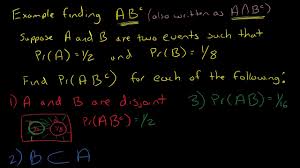 Example finding ABᶜ (also written as A∩Bᶜ)
Suppose A and B are two events such that
Pr(A)=1/2 and Pr(B)=1/8
Find Pr(ABᶜ) for each of the following:
1) A and B are disjoint 3) Pr(AB)=1/16
Pr(ABᶜ)=1/2
2) B⊂A